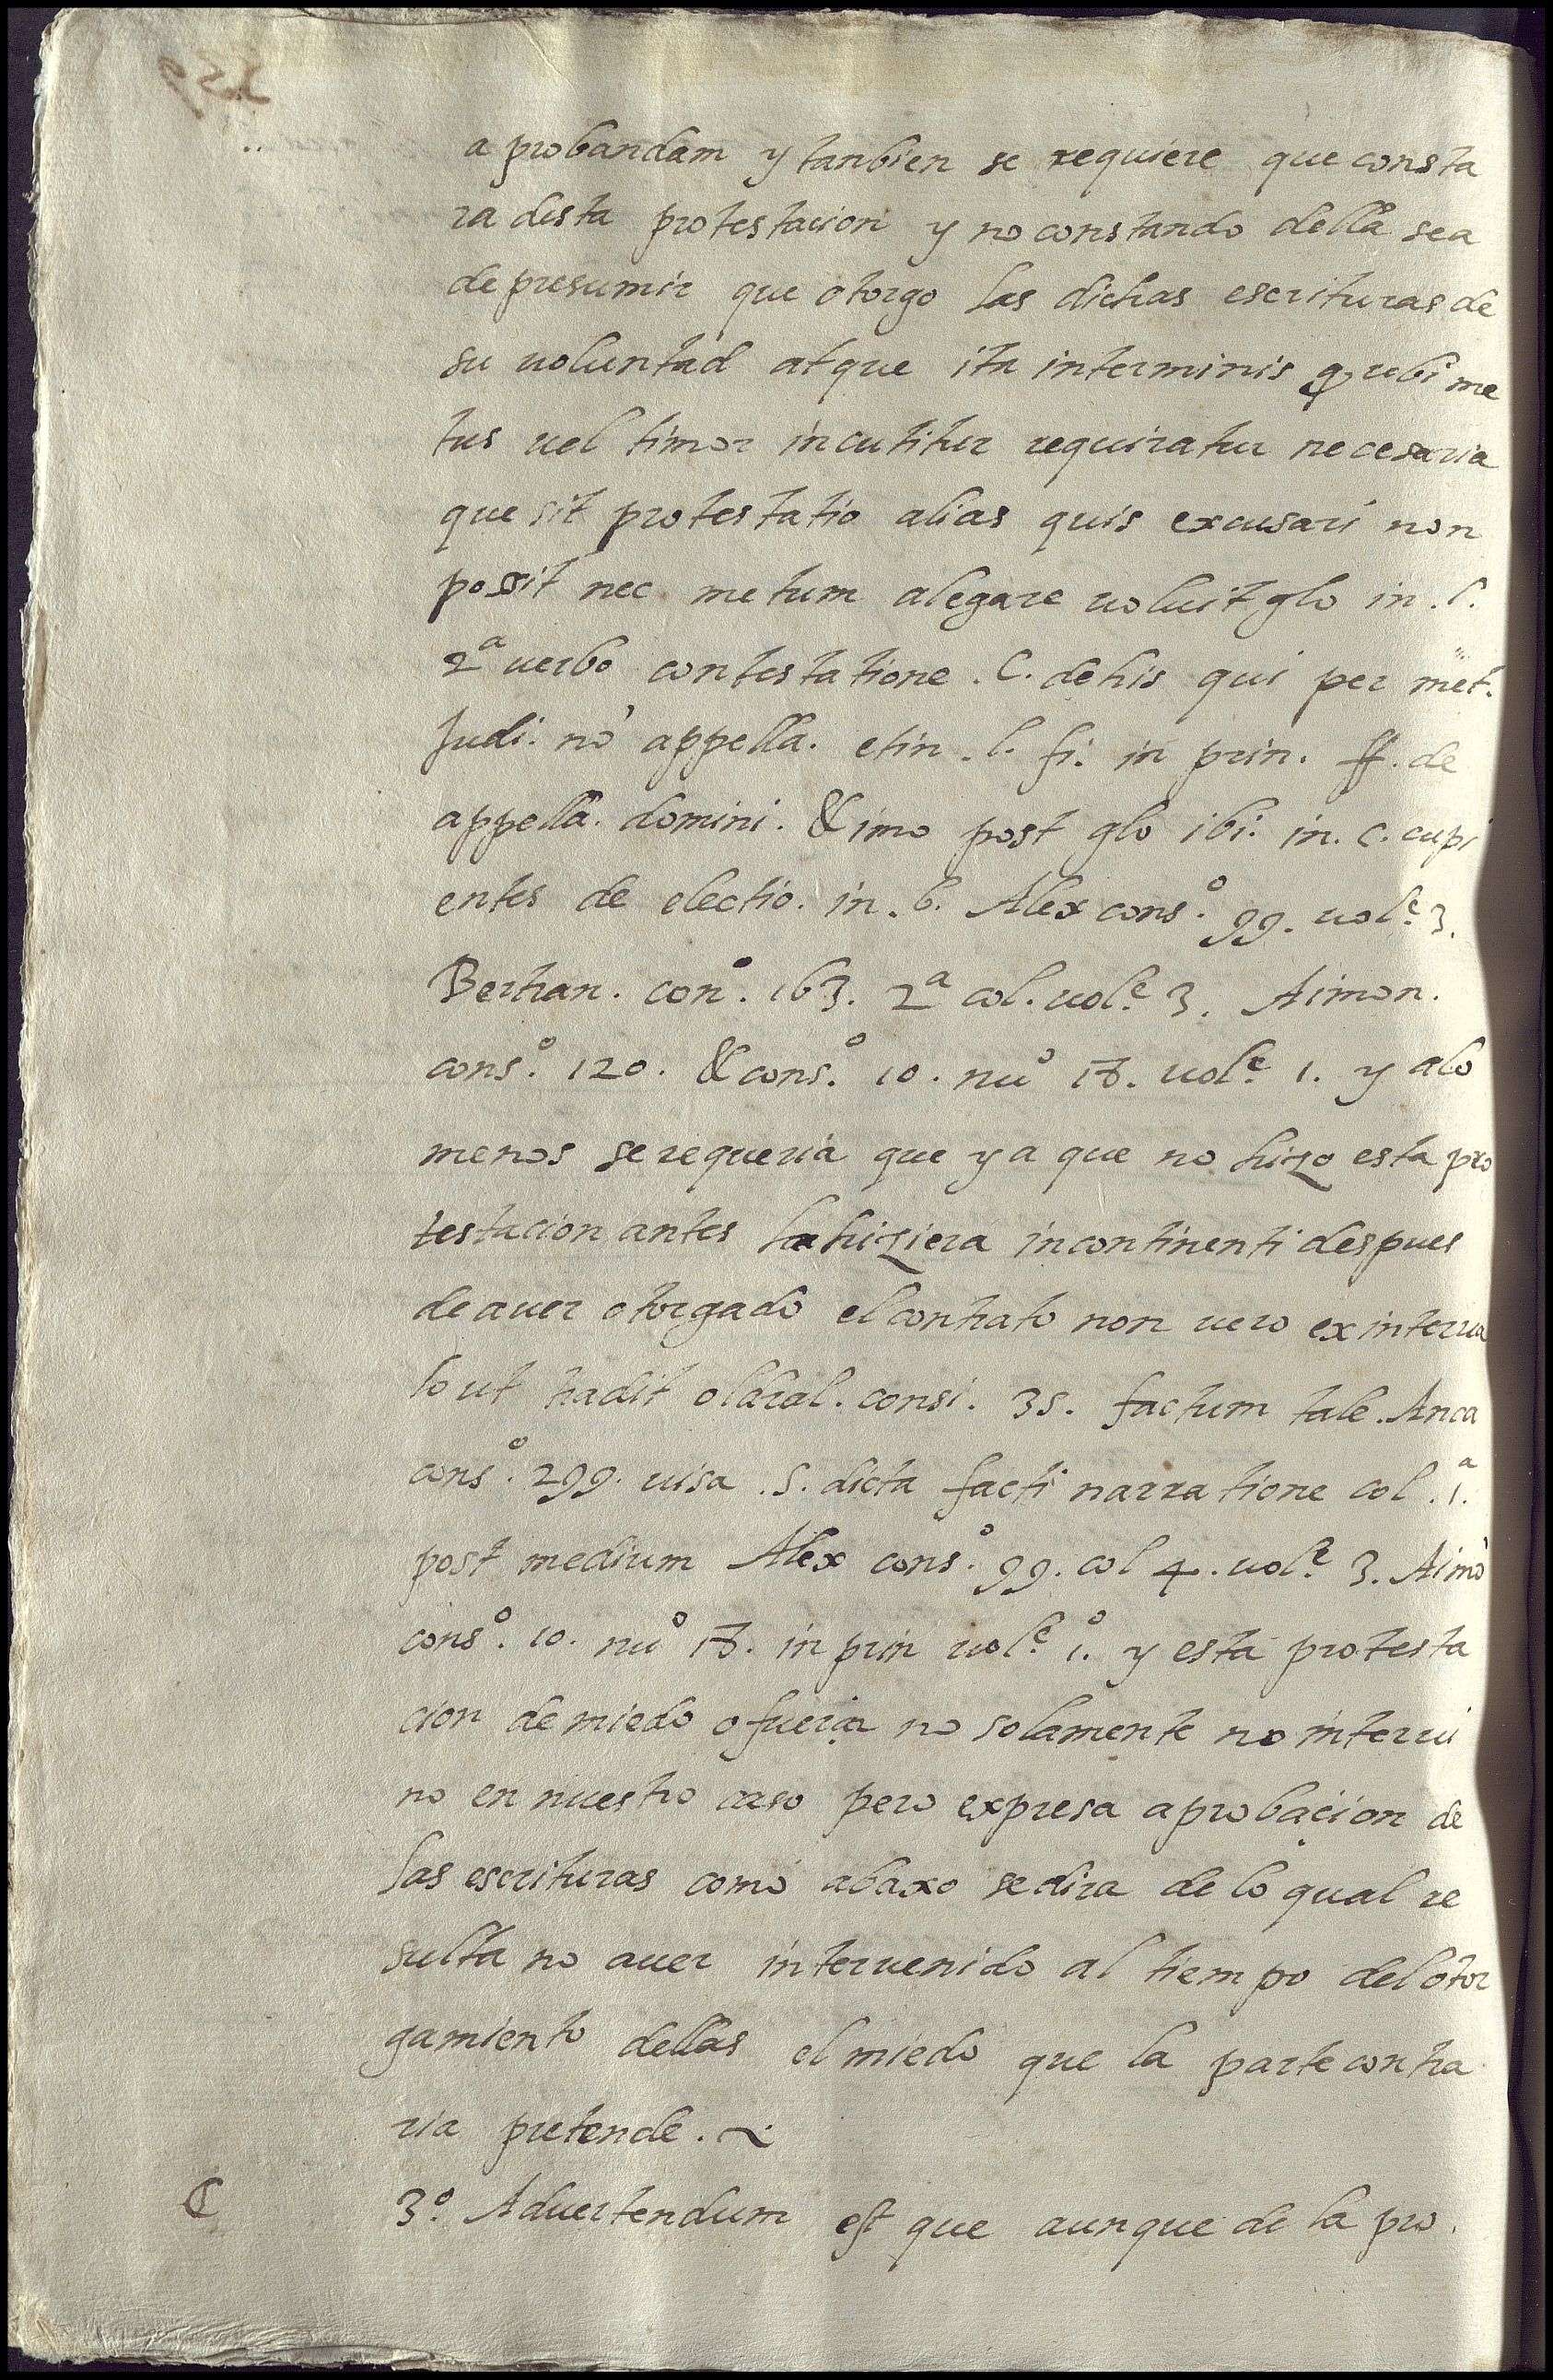 a probandam y tanbien se requiere que consta
ra desta protestacion y no constando della sea
de presumir que otorgo las dichas escrituras de
su uoluntad atque ita interminis q ubi me
tus uel timor incutitur requiratur necesaria
que sit protestatio alias quis excusari non
possit nec metum alegare uoluit glo in .l.
2ª uerbo contestatione . C. de his qui per met.
Judi. nō appella. et in .l. fi. in prin. ff. de
appella. domini. & imo post glo ibi. in. c. cupi
entes de electio. in .6. Alex cons.º 99. uol.e 3.
Bertran. conº. 163. 2ª col. uol.e 3. Aimon.
cons.º 120. & cons.º 10. nuº 17. uol.e 1. y alo
menos se requeria que ya que no hizo esta pro
testacion antes la hiziera incontinenti despues
de auer otorgado el contrato non uero ex interua
lo ut tradit oldral. consi. 35. factum tale. Anca
cons.º 299. uisa .s. dicta facti narratione col .1.ª
post medium Alex cons.º 99. col 4. uol.e 3. Aimō
cons.º 10. nuº 17. in prin uol.e 1.º y esta protesta
cion de miedo o fuerça no solamente no interui
no en nuestro caso pero expresa aprobaçion de
las escrituras como abaxo se dira de lo qual re
sulta no auer interuenido al tiempo del otor
gamiento dellas el miedo que la parte contra
ria pretende.
3.º Aduertendum est que aunque de la pro.